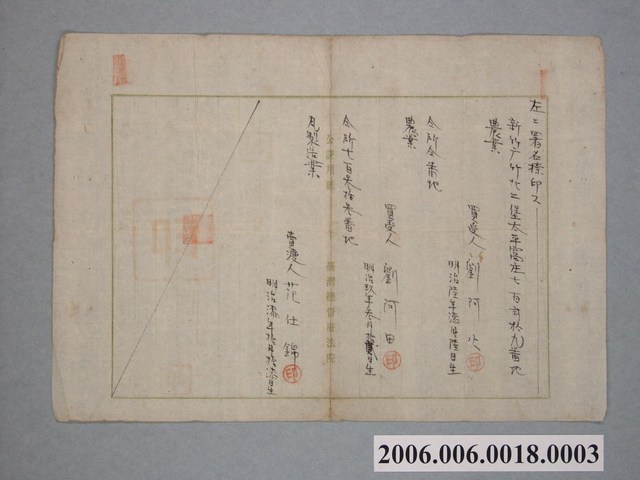 左ニ署名捺印ス
新竹廳竹北二堡太平窩庄七百貳拾九番地
農業
買受人 劉阿
明治陸年 月陸日生
仝所仝番地
農業
買受人 劉阿田
明治玖年叁月 日生
仝所七百叁拾叁番地
瓦製造業
賣渡人 范仕錦
明治 年拾月拾 日生
印
印
印
公證用紙
臺灣總督府法院
2006.006.0018.0003